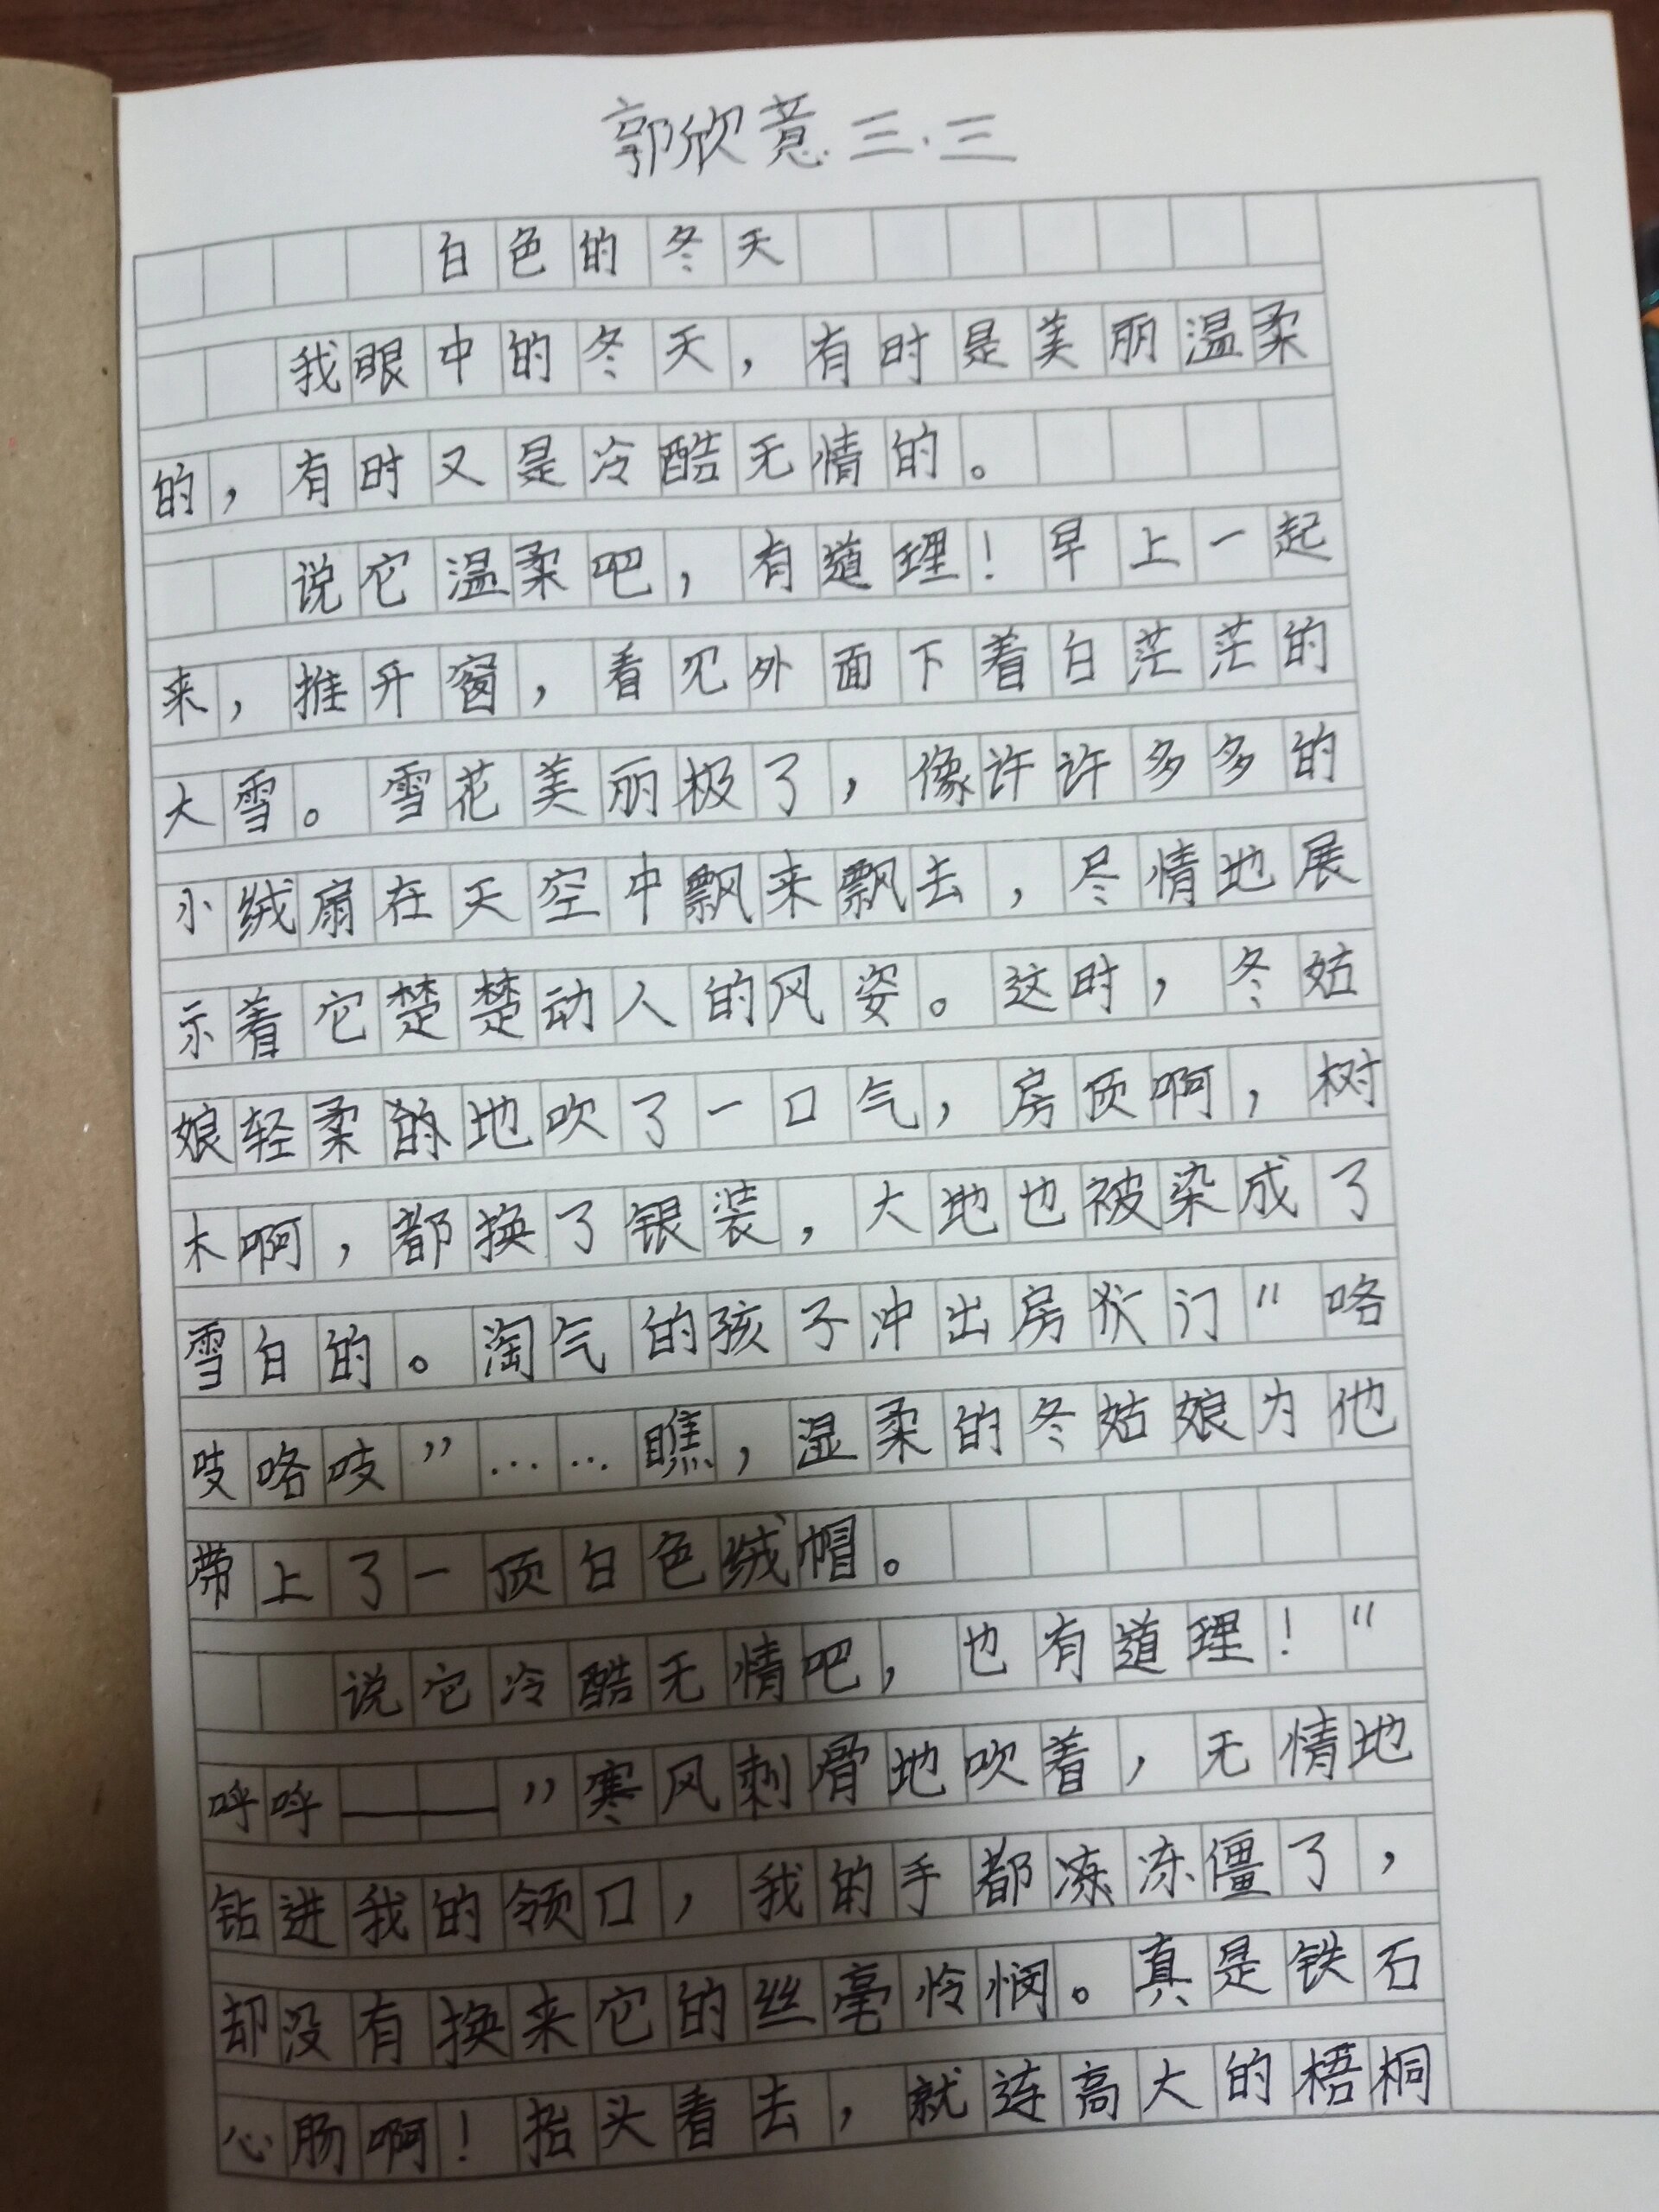 郭欣薏 三.三
白色的冬天
我眼中的冬天，有时是美丽温柔
的，有时又是冷酷无情的。
说它温柔吧，有道理！早上一起
来，推开窗，看见外面下着白茫茫的
大雪。雪花美丽极了，像许许多多的
小绒扇在天空中飘来飘去，尽情地展
示着它楚楚动人的风姿。这时，冬姑
娘轻柔的地吹了一口气，房顶啊，树
木啊，都换了银装，大地也被染成了
雪白的。淘气的孩子冲出房门“咯
吱咯吱”……瞧，温柔的冬姑娘为他
带上了一顶白色绒帽。
说它冷酷无情吧，也有道理！“
呼呼——”寒风刺骨地吹着，无情地
钻进我的领口，我的手都冻冻僵了，
却没有换来它的丝毫怜悯。真是铁石
心肠啊！抬头看去，就连高大的梧桐